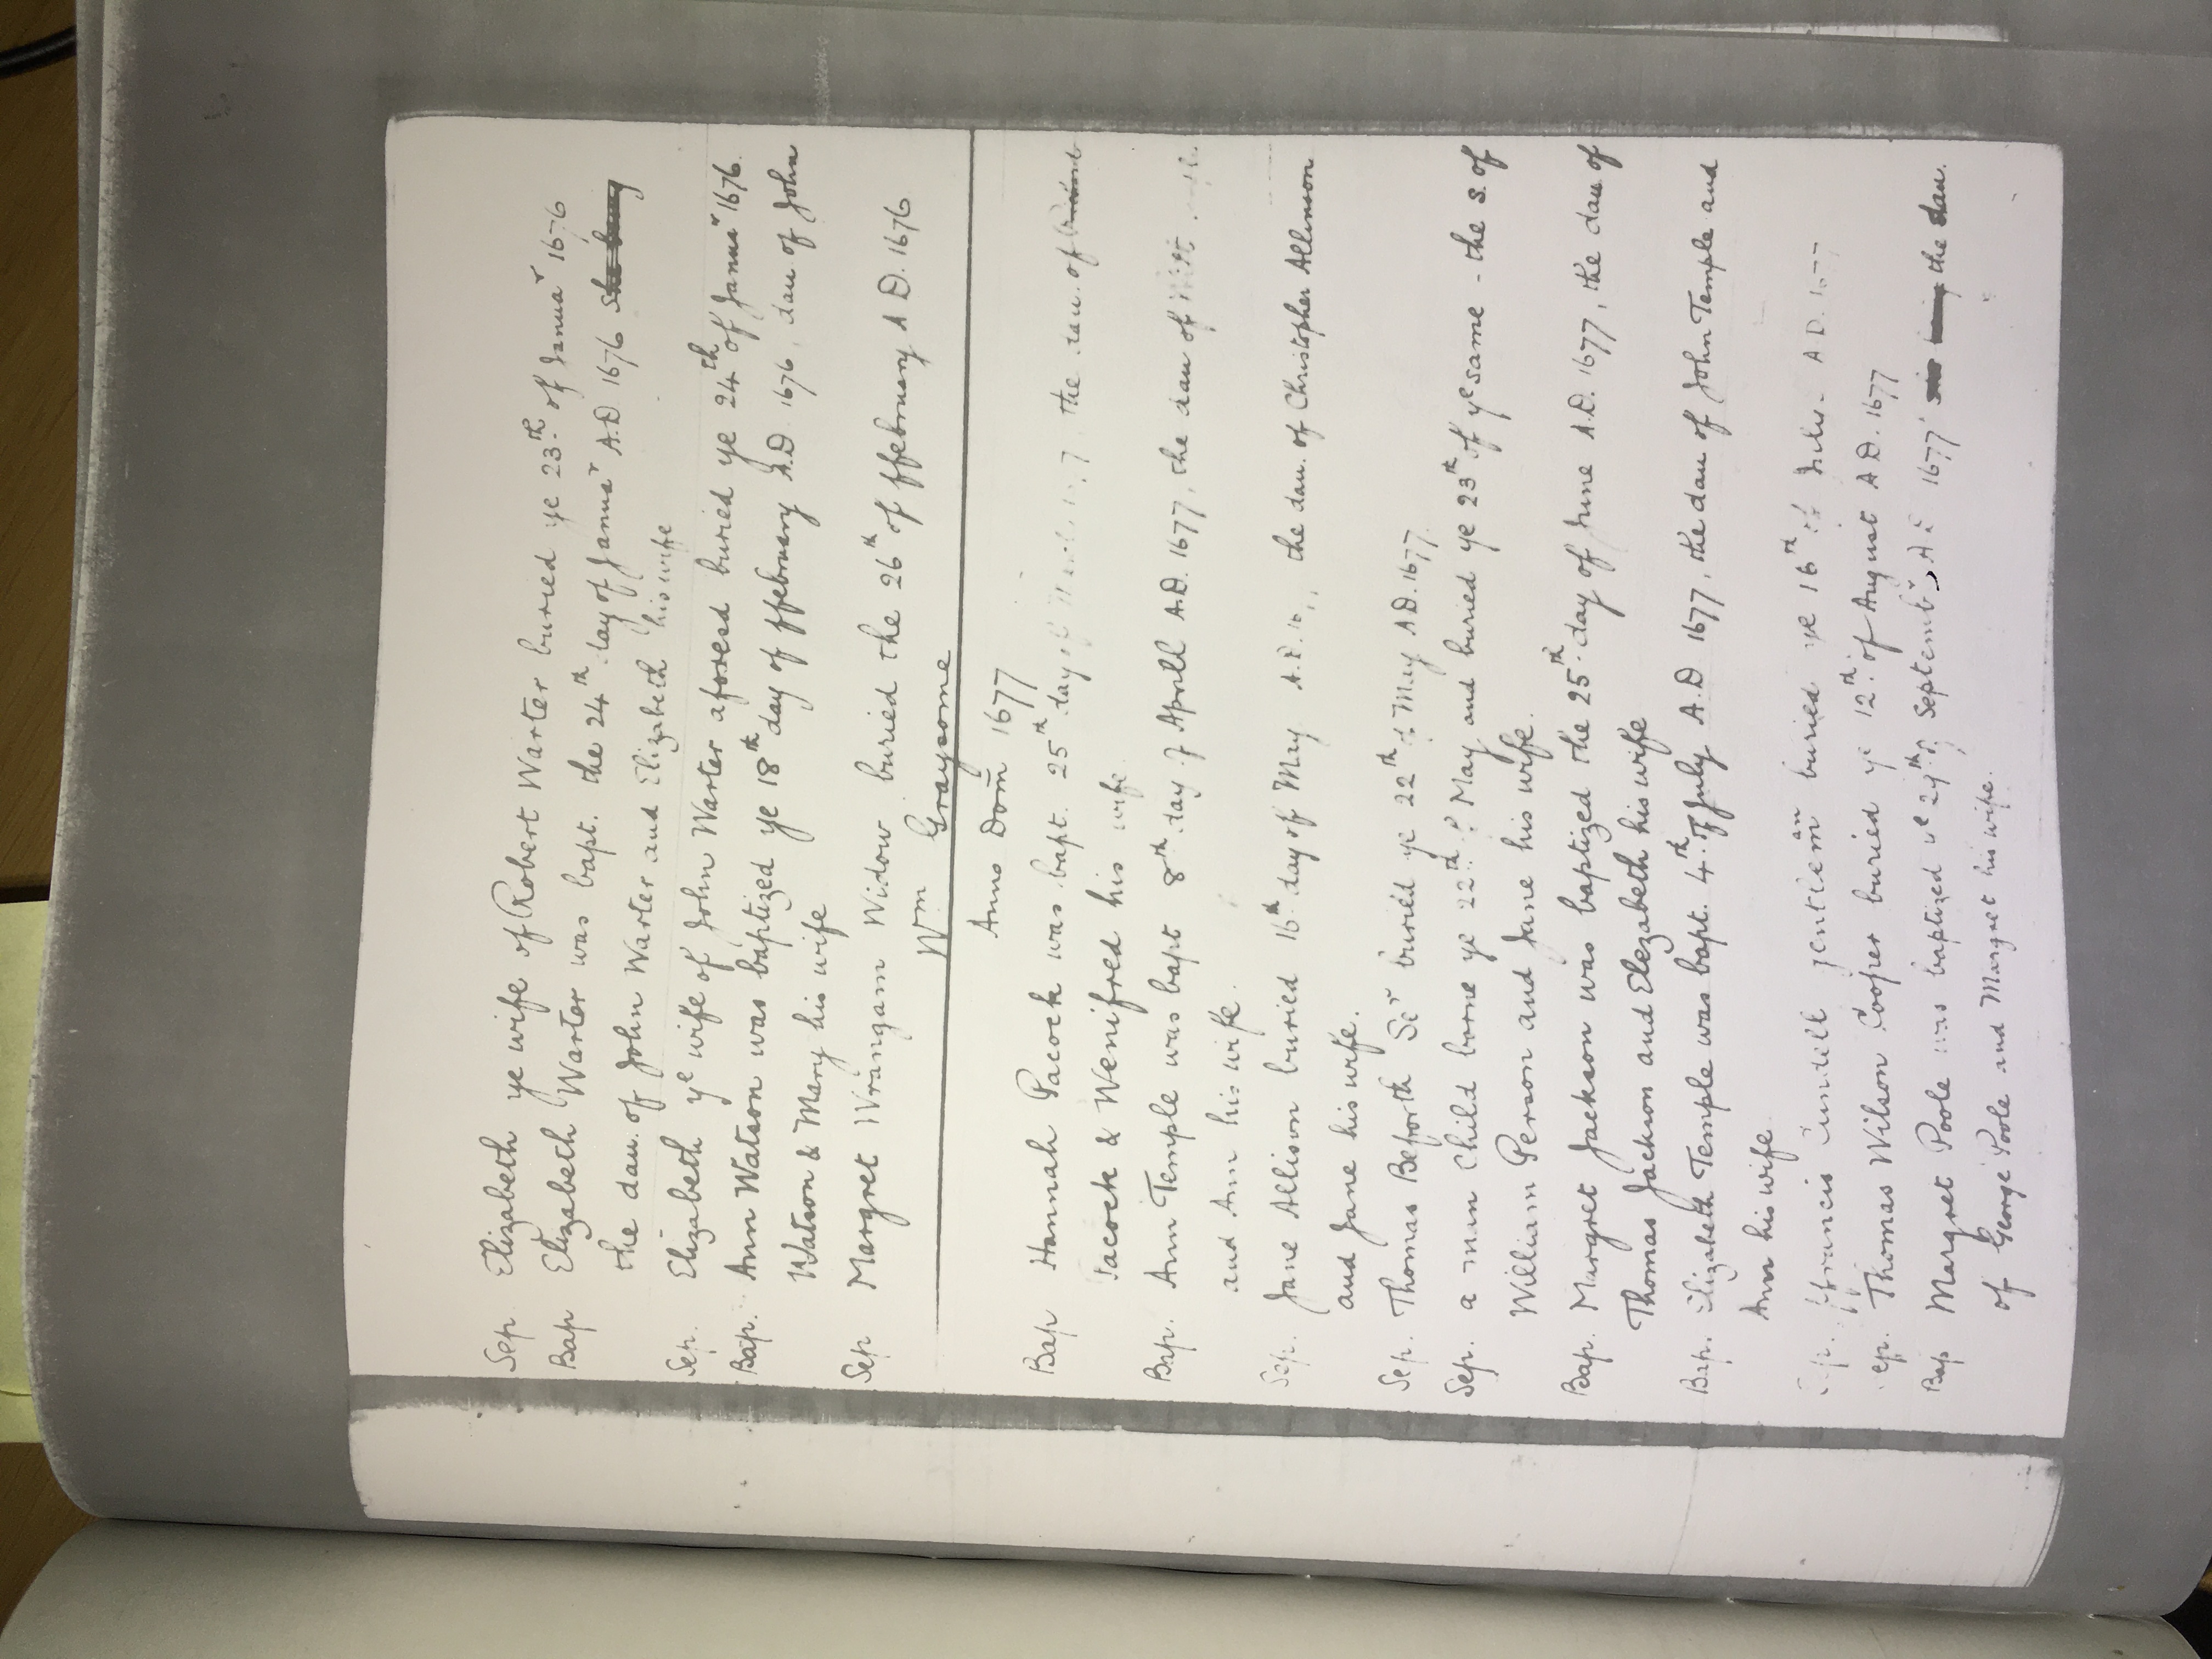 Sep. Elizabeth ye wife of Robert Warter buried ye 23th of Januar 1676
Bap Elizabeth Warter was bapt. the 24th day of Januar A.D 1676
the dau. of John Warter and Elizabeth his wife
Sep. Elizabeth ye wife of John Warter aforesd buried ye 24th of Januar 1676.
Bap. Ann Watson was baptized ye 18th day of ffebruary A.D. 1676, dau of John
Watson & Mary his wife
Sep Margret Wrangam Widow buried the 26th of ffebruary A D. 1676
Wm Graysone
Anno Dom̄ 1677
Bap Hannah Pacock was bapt. 25th day of the dau. of
Pacock & Wenifred his wife.
Bap. Ann Temple was bapt 8th day of Aprill A.D. 1677, the dau of
and Ann his wife.
Sep. Jane Allison buried 16th day of May A.D. the dau. of Christopher Allinson
and Jane his wife.
Sep. Thomas Beforth Ser buried ye 22th of May A.D. 1677
Sep. a man Child borne ye 22th of May and buried ye 23th of ye same - the s. of
William Person and Jane his wife.
Bap. Margret Jackson was baptized the 25th day of June A.D. 1677, the dau of
Thomas Jackson and Elezabeth his wife
Bap. Elizabeth Temple was bapt. 4th of July A.D 1677, the dau of John Temple and
Ann his wife.
Sep. ffrancis Cundell gentlem an buried ye 16th of A D. 1677
Sep. Thomas Wilson Cooper buried ye 12th of August A D. 1677
Bap Margret Poole was baptized ye of Septembr, A D 1677 the dau.
of George Poole and Margret his wife.